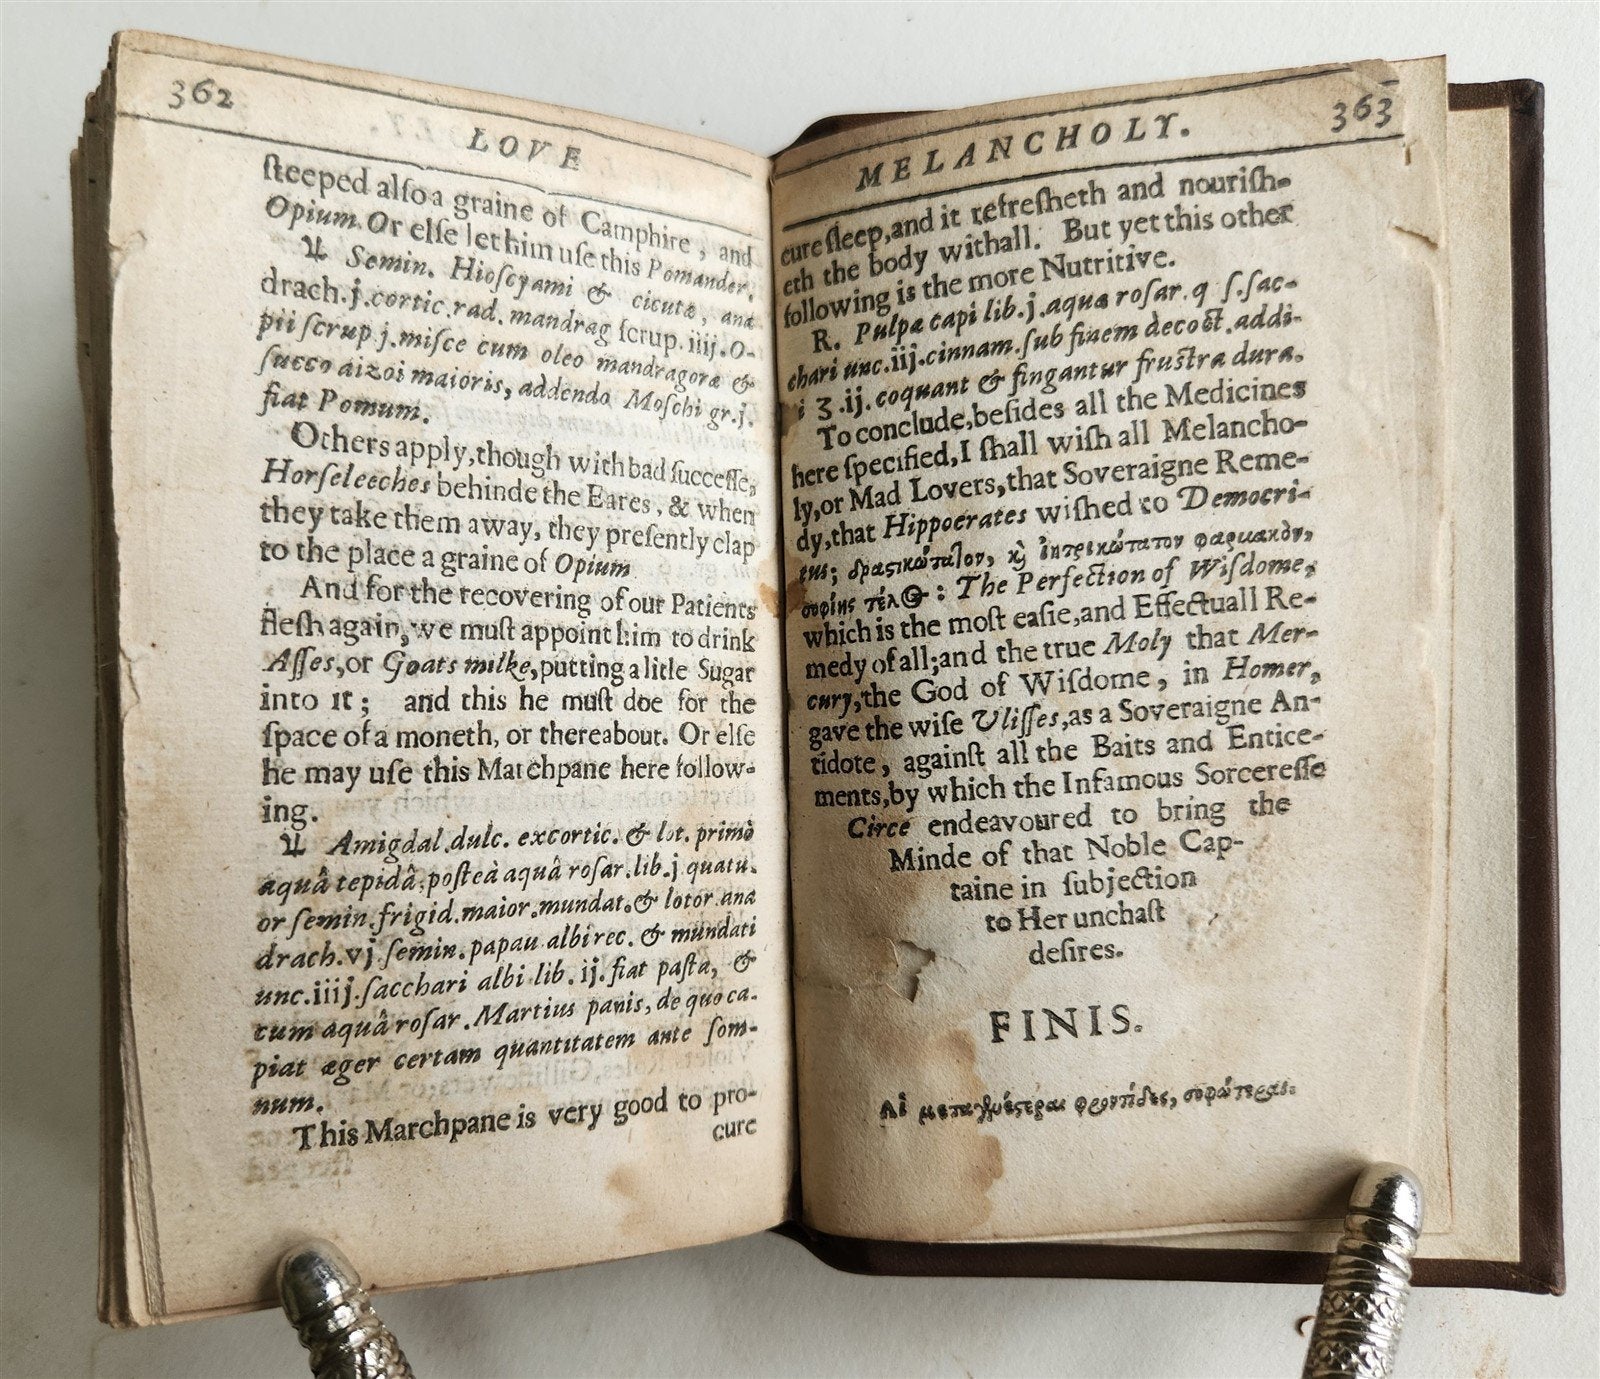 362
LOVE
ſteeped alſo a graine of Camphire, and
Opium. Or elſe let him uſe this Pomander.
♃ Semin. Hioſcyami & cicutæ, ana
drach.j.cortic.rad.mandrag ſcrup.iiij.O-
pii ſcrup j.miſce cum oleo mandragoræ &
ſucco aizoi maioris, addendo Moſchi gr.j.
fiat Pomum.
Others apply, though with bad ſucceſſe,
Horſeleeches behinde the Eares, & when
they take them away, they preſently clap
to the place a graine of Opium
And for the recovering of our Patients
fleſh again, we muſt appoint him to drink
Aſſes, or Goats milke, putting a litle Sugar
into it; and this he muſt doe for the
ſpace of a moneth, or thereabout. Or elſe
he may uſe this Matchpane here follow-
ing.
♃ Amigdal.dulc. excortic. & lot. primò
aquâ tepidâ, poſteà aquâ roſar.lib.j quatu-
or ſemin.frigid.maior.mundat.& lotor ana
drach.vj.ſemin.papau albi rec. & mundati
unc.iiij.ſacchari albi lib. ij. fiat paſta, &
cum aquâ roſar. Martius panis, de quo ca-
piat æger certam quantitatem ante ſom-
num.
This Marchpane is very good to pro-
cure
363
MELANCHOLY.
cure ſleep, and it refreſheth and nouriſh-
eth the body withall. But yet this other
following is the more Nutritive.
R. Pulpæ capi lib.j.aquæ roſar.q ſ.ſac-
chari unc.iij.cinnam.ſub finem decoct.addi-
i ʒ.ij.coquant & fingantur fruſtra dura.
To conclude, beſides all the Medicines
here ſpecified, I ſhall wiſh all Melancho-
ly, or Mad Lovers, that Soveraigne Reme-
dy, that Hippocrates wiſhed to Democri-
tus; δραςικώταlον, κ̀ ἰητρικώτατον φαρμακὸν,
σοφίης τέλος: The Perfection of Wiſdome,
which is the moſt eaſie, and Effectuall Re-
medy of all; and the true Moly that Mer-
cury, the God of Wiſdome, in Homer,
gave the wiſe Uliſſes, as a Soveraigne An-
tidote, againſt all the Baits and Entice-
ments, by which the Infamous Sorcereſſe
Circe endeavoured to bring the
Minde of that Noble Cap-
taine in ſubjection
to Her unchaſt
deſires.
FINIS.
Αἱ μεταγλυέςεραι φροντίδες, σοφώτεραι.